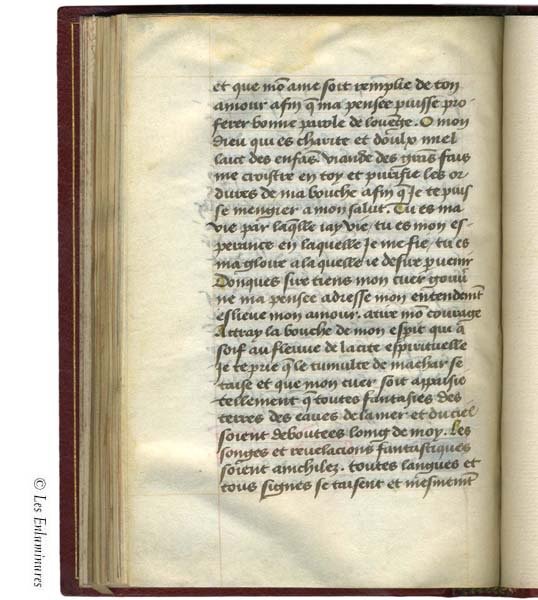 et que mõ ame soit remplie de ton
amour afin q̃ ma pensee puisse pro-
ferer bonne parole de louẽge. O mon
dieu qui es charite et doulx miel
laict des enfãs. viande des grãs fais
me croistre en toy et purifie les or-
dures de ma bouche afin q̃ Je te puis
se mengier a mon salut. Tu es ma
vie par laq̃lle iay vie, tu es mon es-
perance en laquelle Je me fie, tu es
ma gloire a laquelle ie desire p̃uenir
Donques sire tiens mon cuer gouũ
ne ma pensee adresse mon entendemẽt
eslieue mon amour. atire mõ courage
Attray la bouche de mon esp̃it qui a
soif au fleuue de la cite espirituelle
Je te prie q̃ le tumulte de ma char se
taise et que mon cuer soit appaisie
tellement q̃ toutes fantasies des
terres des eaues de la mer et du ciel
soient deboutees loing de moy. Les
songes et reuelacions fantastiques
soient anichilez. toutes langues et
tous signes se taisent et mesmemẽt
© Les Enluminures